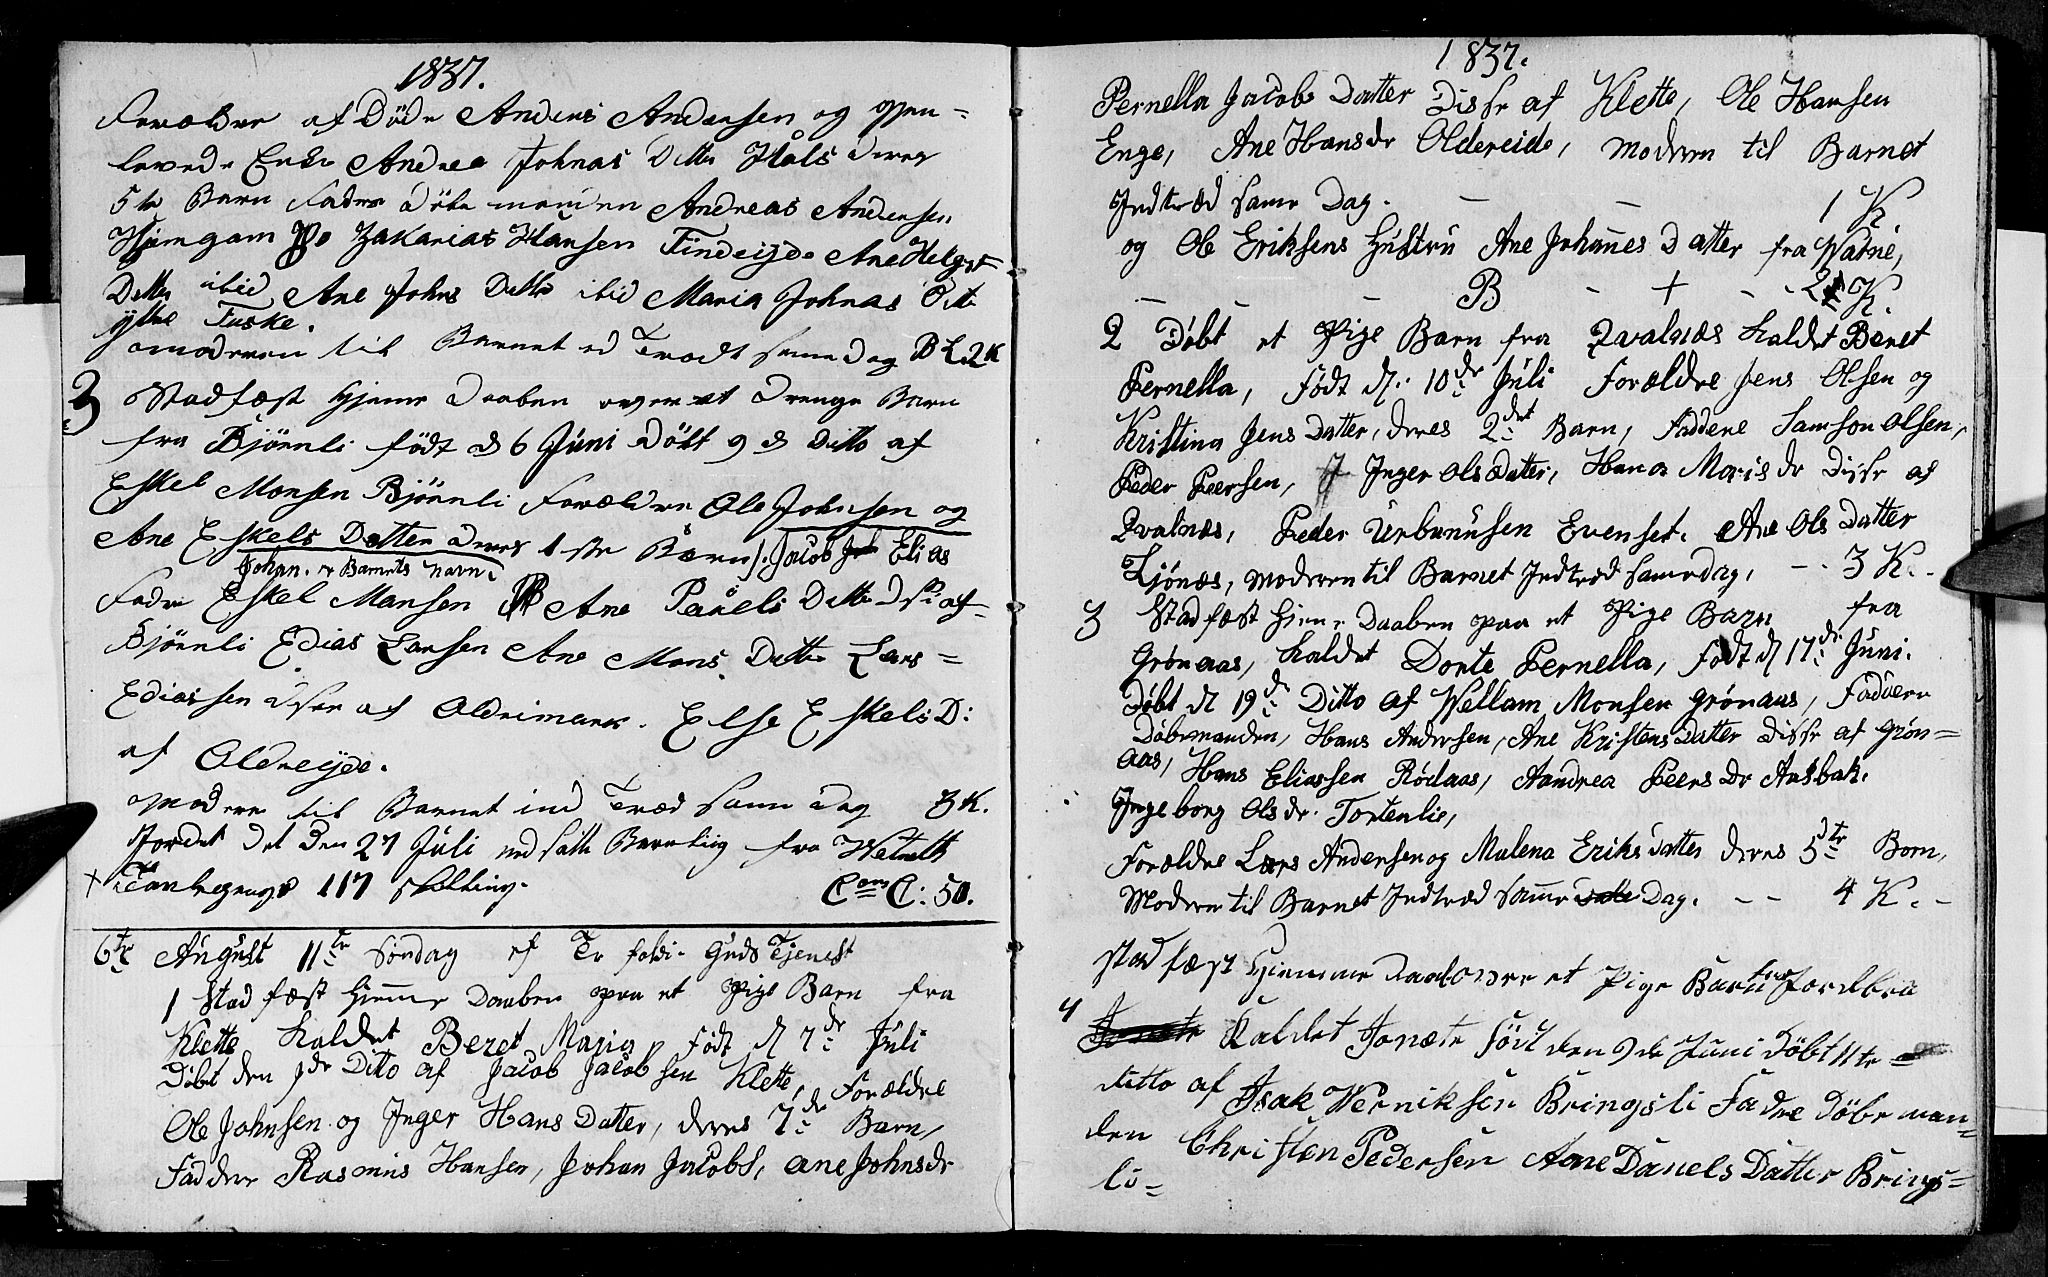 1837.
Forældre af Døde Anders Andersen og gjen-
levede Enke Andrea Johnas Datter Hals deres
5te Barn Fadre Døbe manden Andreas Andersen
Hjemgam Zakarias Hansen Findeijde Ane Helges
Datter ibid Ane Johns Datter ibid Maria Johnas Dtr
yttre Fuske.
moderen til Barnet ind Trædt samme Dag B 2 K
3 Stadfæst Hjeme Daaben over et Drenge Barn
fra Bjørnli født d 6 Juni Døbt 9 d Ditto af
Eskel Monsen Bjørnli Forældre Ole Johnsen og
Ane Eskels Datter deres 1ste Barn Jacob Elias
Johan. er Barnets navn.
Fadre Eskel Mansen Ane Paaels Datter Disse af
Bjørnli Edias Larsen Ane Mons Datter Lars
Ediassen Disse af Oldrimark. Else Eskels D:
af Oldreijde.
moderen til Barnet ind Træd samme Dag 3 K.
Jordet det Den 27 Juli ned satte Barnelig fra
+ 117 skilling. C: 50.
6te August 11te Søndag ef Tr foldi. Guds Tjenest
1 Stad fæst Hjemme Daaben paa et Pige Barn fra
Klette kaldet Beret Maria født d 7de Juli
Døbt den 9de Ditto af Jacob Jacobsen Klette, Forældre
Ole Johnsen og Inger Hans Datter, deres 7de Barn,
Faddere Rasmus Hansen, Johan Jacobs, Ane Johnsdr
1837.
Pernella Jacobs Datter Disse af Klette, Ole Hansen
Enge, Ane Hansdr Oldereide, moderen til Barnet
Indtræd samme Dag. — — 1 K.
og Ole Eriksens Hustru Ane Johannes Datter fra Warne,
— — B - + - - 2 K.
2 Døbt et Pige Barn fra Qvalnæs kaldet Beret
Pernella, Født d. 10de Juli Forældre Jens Olsen og
Kristina Jens Datter, deres 2det Barn, Faddere Samson Olsen,
Peder Peersen, Inger Ols Datter, Hana Morisdr Disse af
Qvalnæs, Peder Urbanusen Evenset. Ane Ols Datter
Ljønæs, moderen til Barnet Indtræd samme dag, - - 3 K. -
3 Stadfæst Hjeme Daaben paa et Pige Barn fra
Grønaas, kaldet Dorte Pernella, født d 17de Juni.
Døbt d 19de Ditto af Wellam Monsen Grønaas, Faddere
Døbemanden, Hans Andersen, Ane Kristens Datter Disse af Grøn=
aas, Hans Eliassen Rødaas, Aandrea Peersdr Aasbak.
Ingeborg Olsdr. Tortenlie,
Forældre Lars Andersen og Malena Eriks Datter deres 5te Born,
Moderen til Barnet Indtræd samme Dag. - - 4 K. -
stad fæst Hjemme Daab over et Pige Barn Jordbra
4 Kaldet Jonæta født den 9de Juni Døbt 11te
ditto af Isak Werniksen Bringsli Fadre Døbe man=
den Christen Pedersen Ane Daniels Datter Brings=
li=